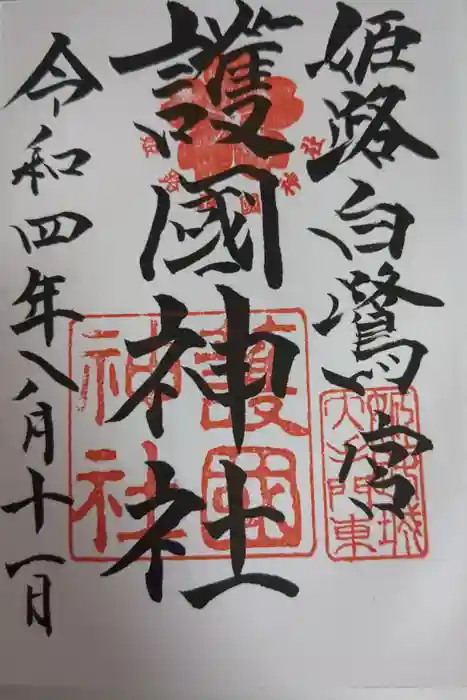 姫路白鷺宮
護國神社
令和四年八月十一日
護國
神社
姫路城
大手門東